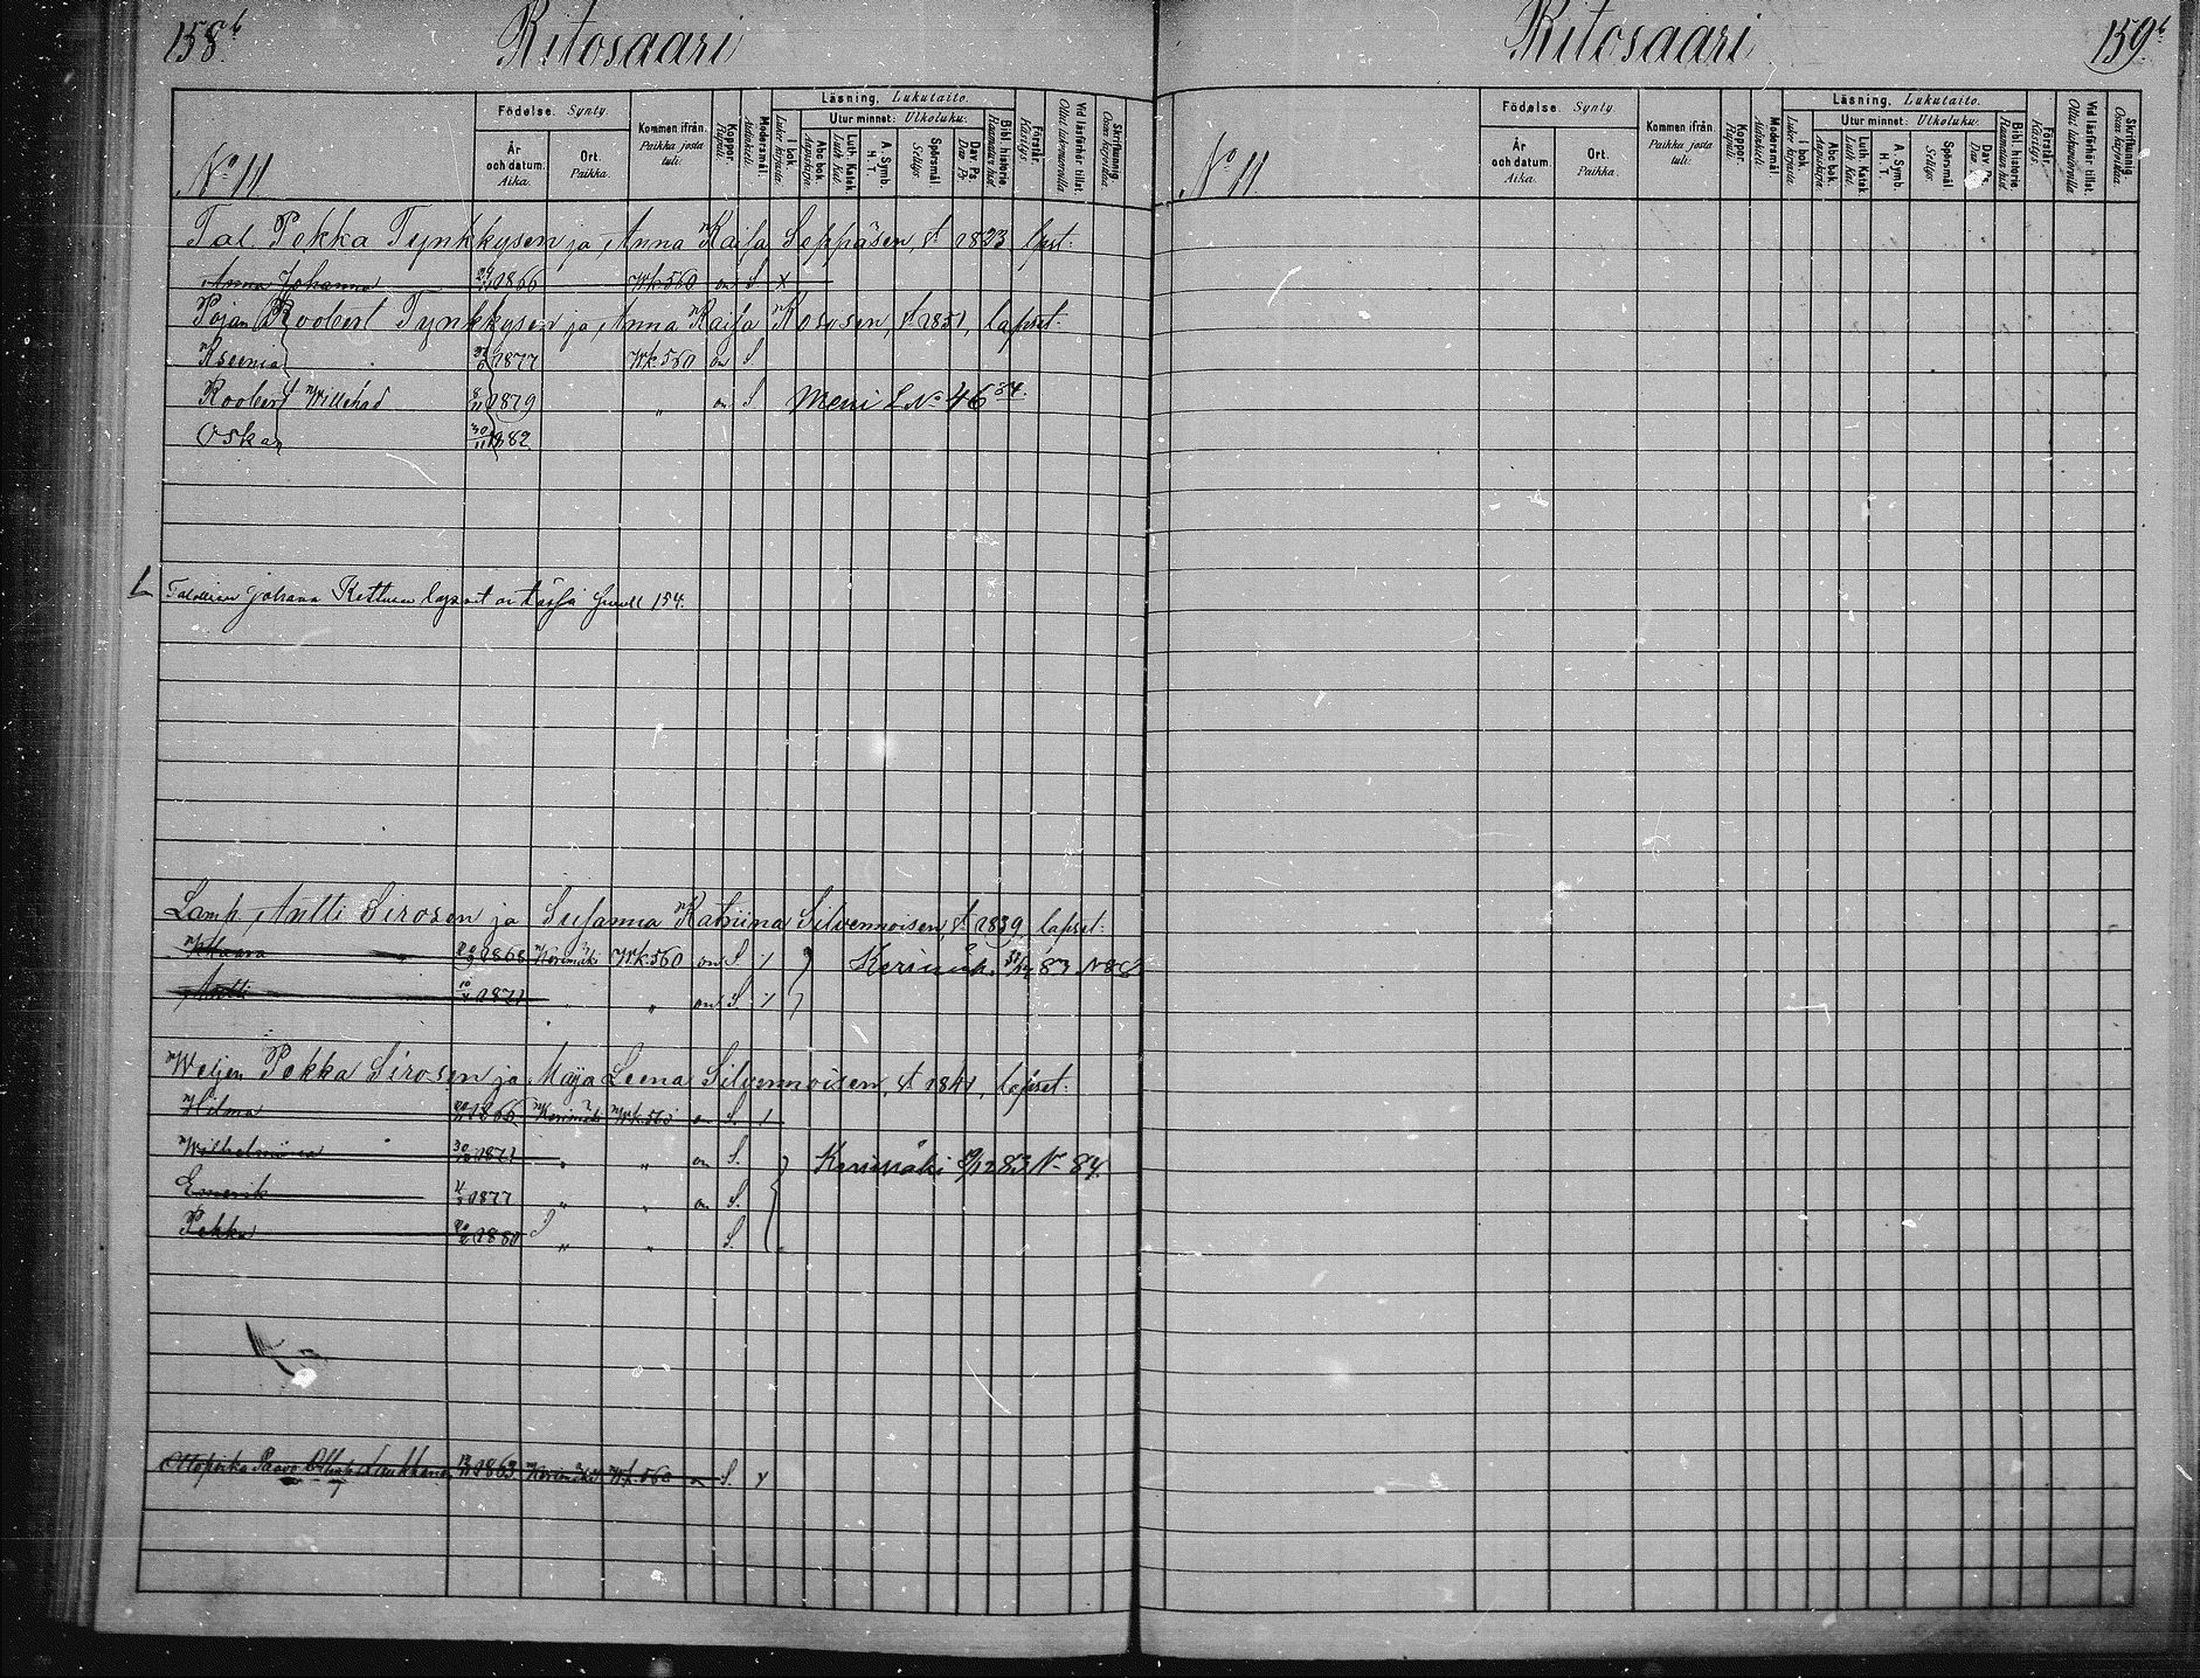 158 b. Ritosaari
Födelse. Synty.
År och datum. Aika.
Ort. Paikka.
Kommen ifrån. Paikka josta tuli:
Koppor. Rupuli.
Modersmål. Äidinkieli.
Läsning. Lukutaito.
I bok. Lukee kirjasta.
Utur minnet: Ulkoluku.
Abc bok. Aapiskirja.
Luth. Katek. Luth. Kat.
A. Symb. H. T.
Spörsmål. Selitys.
Dav. Ps. Daw. Ps.
Bibl. historie. Raamatun hist.
Förstår. Käsitys.
Vid läsförhör tillst. Ollut lukukinkerillä
Skrifkunnig. Osaa kirjoittaa.
No 11
Tal. Pekka Tynkkysen ja Anna Kaisa Seppäsen, st 1823 lpst:
Anna Johanna 1866 Wk. 560 on S x
Pojan Roobert Tynkkysen ja Anna Kaisa Kososen, st 1851, lapset:
Ksenia 1877 Wk. 560 on S
Roobert Willehad 1879 " on S Meni L No 46 84.
Oskar 30/11 1882
L Talollisen Johana Kettusen lapset on tässä 154.
Lamp. Antti Sirosen ja Susanna Katriina Silvennoisen, st 1839, lapset:
Klaara 1868 Kerimäki Wk. 560 on S / Kerimäki 83 N 82
Antti 10 1871 " " on S /
Weljen Pekka Sirosen ja Maija Leena Silvennoisen, st 1841, lapset:
Hilma 1866 Kerimäki Wk. 560 on S. /
Wilhelmiina 30 1871 " " on S. Kerimäki 83 N 84.
Emerik 1877 " " on S.
Pekka 1880 " " S.
Ottopoika Paavo Laukkanen 1863 Kerimäki Wk. 560 on S. x
Ritosaari 159 b.
Födelse. Synty.
År och datum. Aika.
Ort. Paikka.
Kommen ifrån. Paikka josta tuli:
Koppor. Rupuli.
Modersmål. Äidinkieli.
Läsning. Lukutaito.
I bok. Lukee kirjasta
Utur minnet: Ulkoluku.
Abc bok. Aapiskirja.
Luth. Katek. Luth. Kat.
A. Symb. H. T.
Spörsmål Selitys.
Dav. Ps. Daw. Ps.
Bibl. historie Raamatun hist.
Förstår. Käsitys.
Vid läsförhör tillst. Ollut lukukinkerillä
Skrifkunnig. Osaa kirjoittaa.
No 11